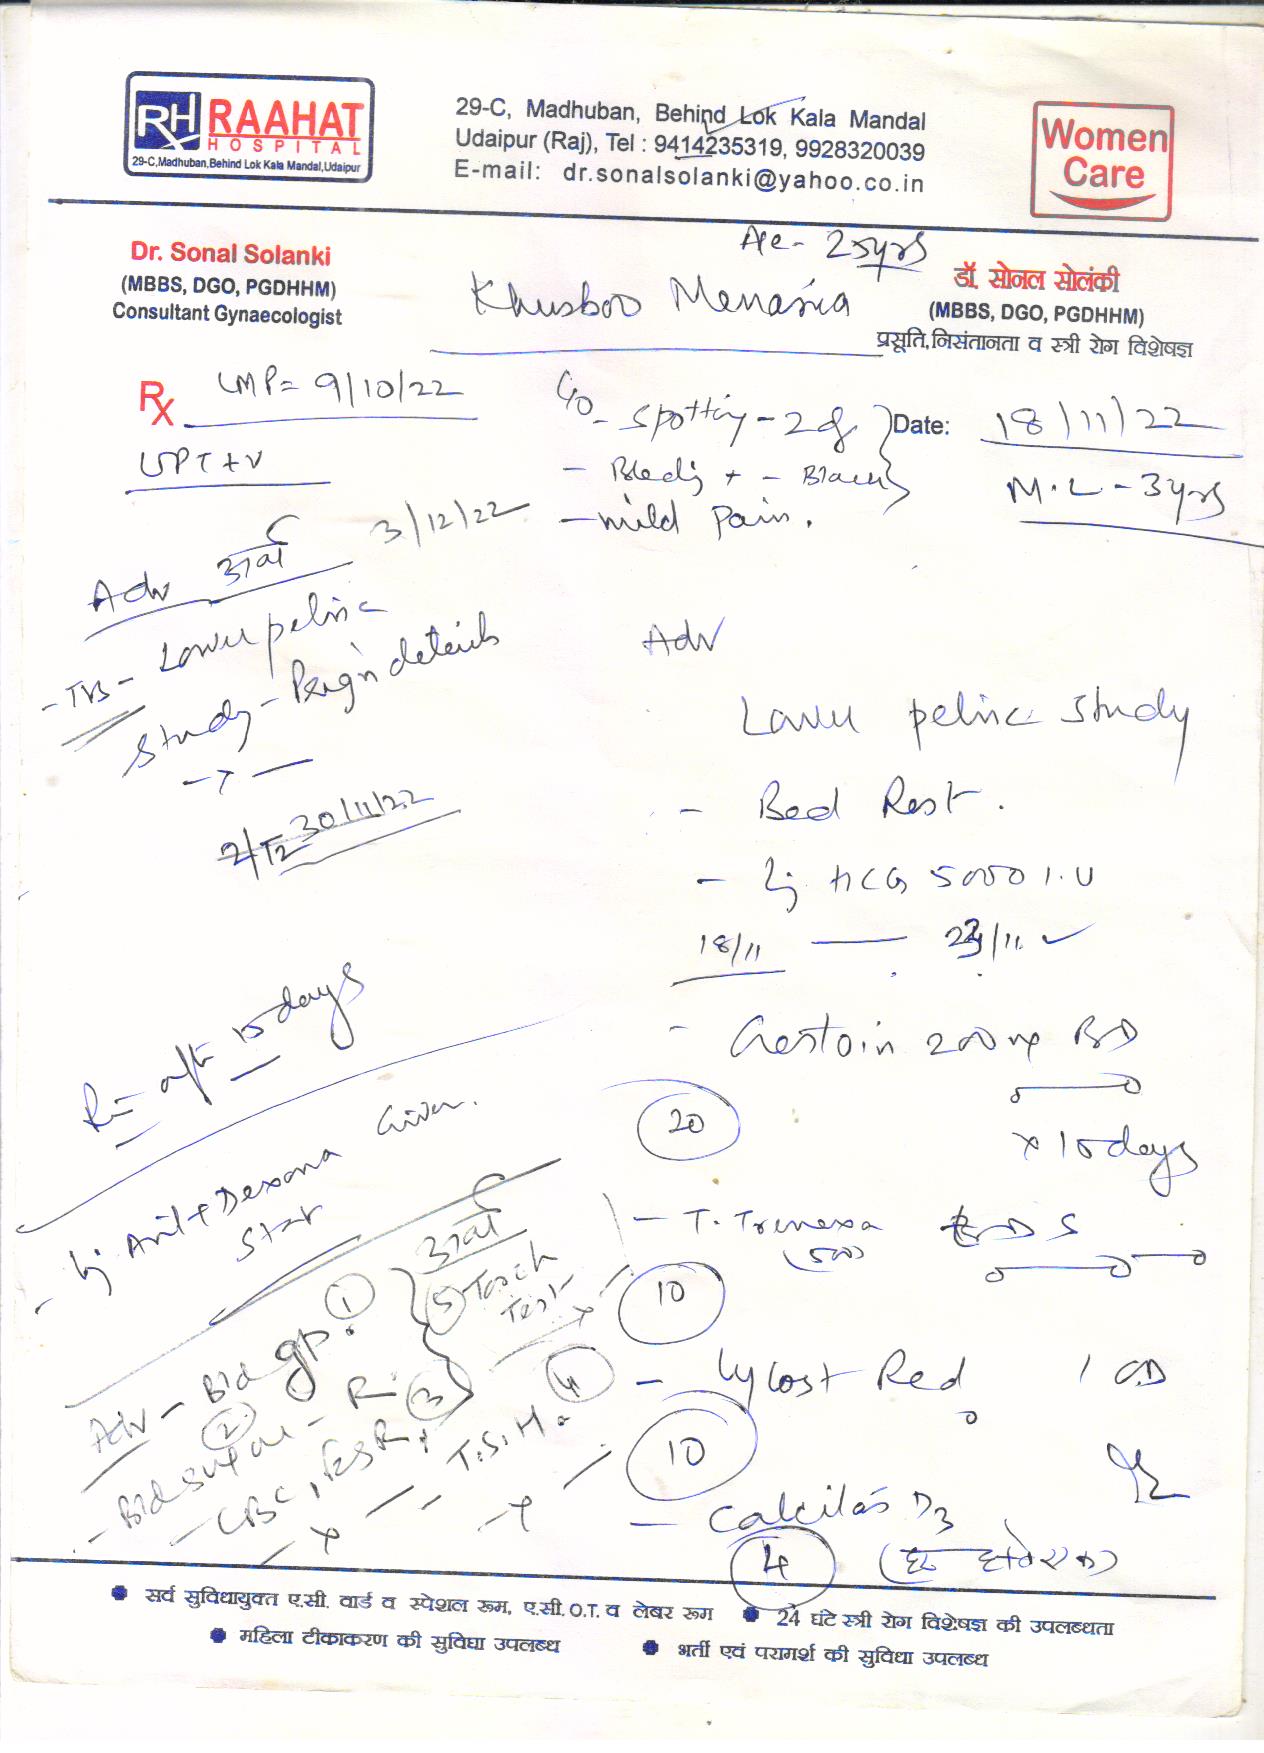 RH RAAHAT
HOSPITAL
29-C,Madhuban,Behind Lok Kala Mandal,Udaipur
29-C, Madhuban, Behind Lok Kala Mandal
Udaipur (Raj), Tel : 9414235319, 9928320039
E-mail: dr.sonalsolanki@yahoo.co.in
Women
Care
Dr. Sonal Solanki
(MBBS, DGO, PGDHHM)
Consultant Gynaecologist
Age - 25yrs
Khusboo Menaria
डॉ. सोनल सोलंकी
(MBBS, DGO, PGDHHM)
प्रसूति,निसंतानता व स्त्री रोग विशेषज्ञ
Rx LMP= 9/10/22
UPT +v
C/o - Spotting - 2d
- Bleeding + - Black
- mild pain.
Date: 18/11/22
M.L - 3yrs
Adv 3/12/22
- TVS - Lower pelvic
study - Preg'n details
30/11/22
R= aft 15 days
- Inj Avil + Dexona Given.
Stat
Adv - Bld gp. 1
- Bld sugar - R 2
- CBC, ESR, 3
- T.S.H. 4
5 Torch
Test
Adv
Lower pelvic study
- Bed Rest.
- Inj HCG 5000 I.U
18/11 — 23/11
- Gestoin 200 mg BD
20
x 15 days
- T. Trenexa TDS
(500)
10
- Lycost Red 1 OD
10
- Calcilas D3
4
सर्व सुविधायुक्त ए.सी. वार्ड व स्पेशल रूम, ए.सी.O.T. व लेबर रूम
24 घंटे स्त्री रोग विशेषज्ञ की उपलब्धता
महिला टीकाकरण की सुविधा उपलब्ध
भर्ती एवं परामर्श की सुविधा उपलब्ध